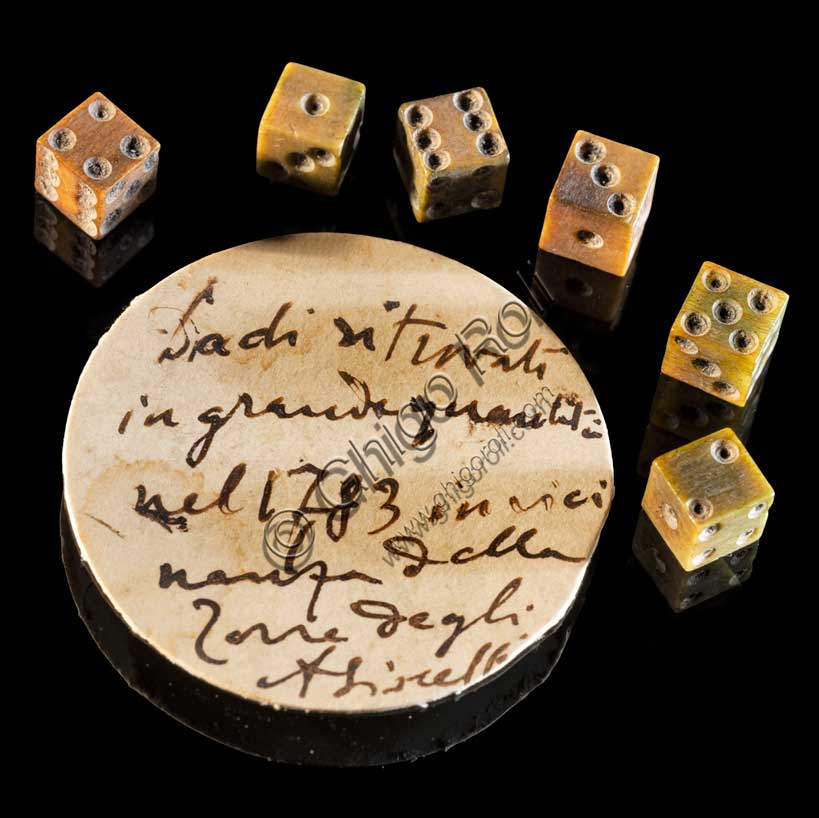 Dadi ritrovati
in grande quantità
nel 1783 in vici
nanza della
Torre degli
Asinelli
© Chigo Roli
www.ghigoroli.com